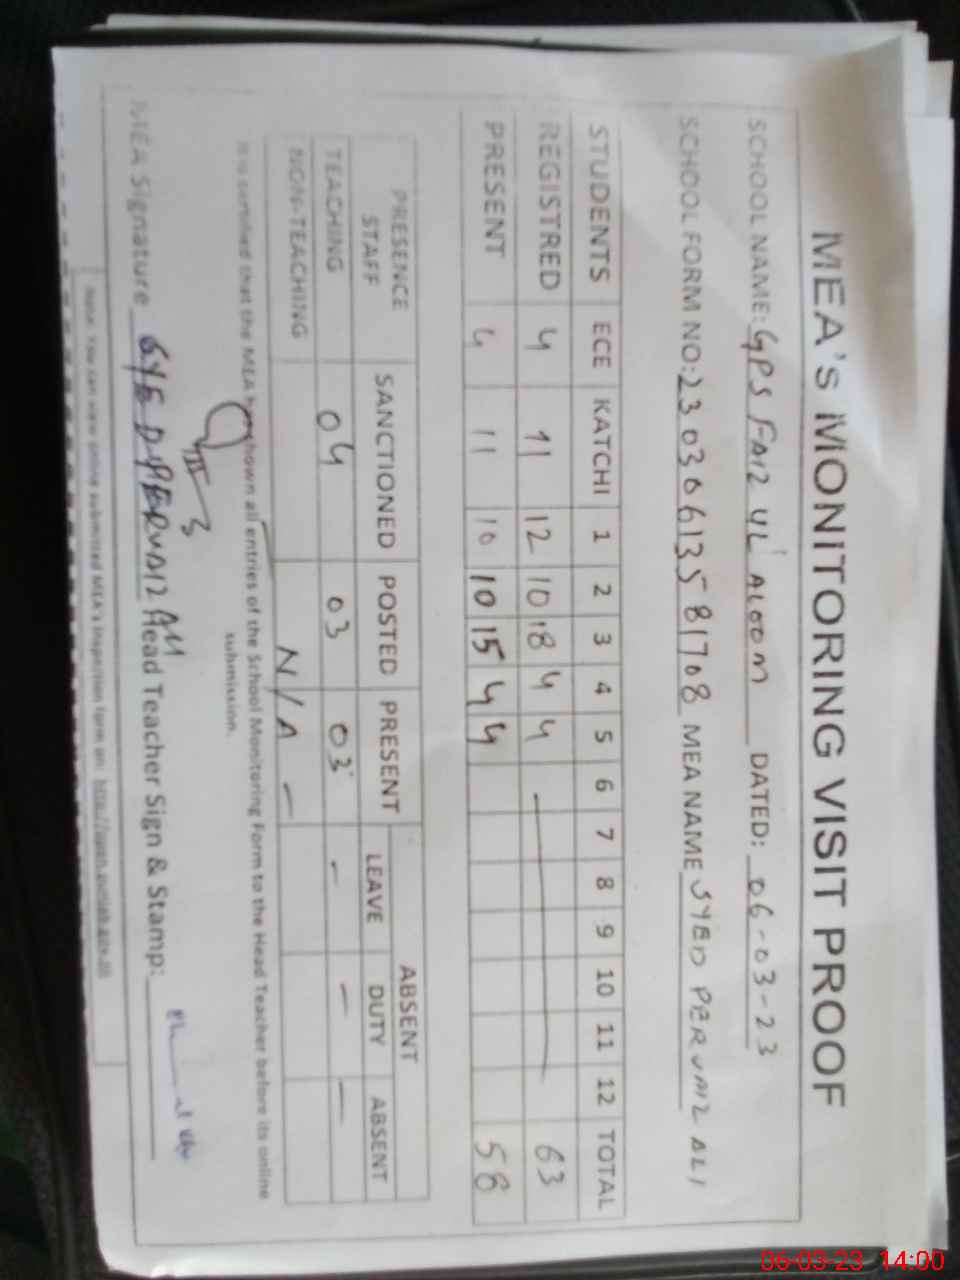 MEA's MONITORING VISIT PROOF
SCHOOL NAME: GPS FAIZ UL ALOOM DATED: 06-03-23
SCHOOL FORM NO: 23036613581708 MEA NAME SYED PERVAIZ ALI
STUDENTS ECE KATCHI 1 2 3 4 5 6 7 8 9 10 11 12 TOTAL
REGISTRED 4 11 12 10 18 4 4 63
PRESENT 4 11 10 10 15 4 4 58
PRESENCE STAFF SANCTIONED POSTED PRESENT ABSENT
LEAVE DUTY ABSENT
TEACHING 04 03 03 - - -
NON-TEACHING N/A -
It is certified that the MEA has shown all entries of the School Monitoring Form to the Head Teacher before its online
submission.
MEA Signature SYED PERVAIZ ALI Head Teacher Sign & Stamp:
Note: You can view online submitted MEA's inspection form on:
06-03-23 14:00